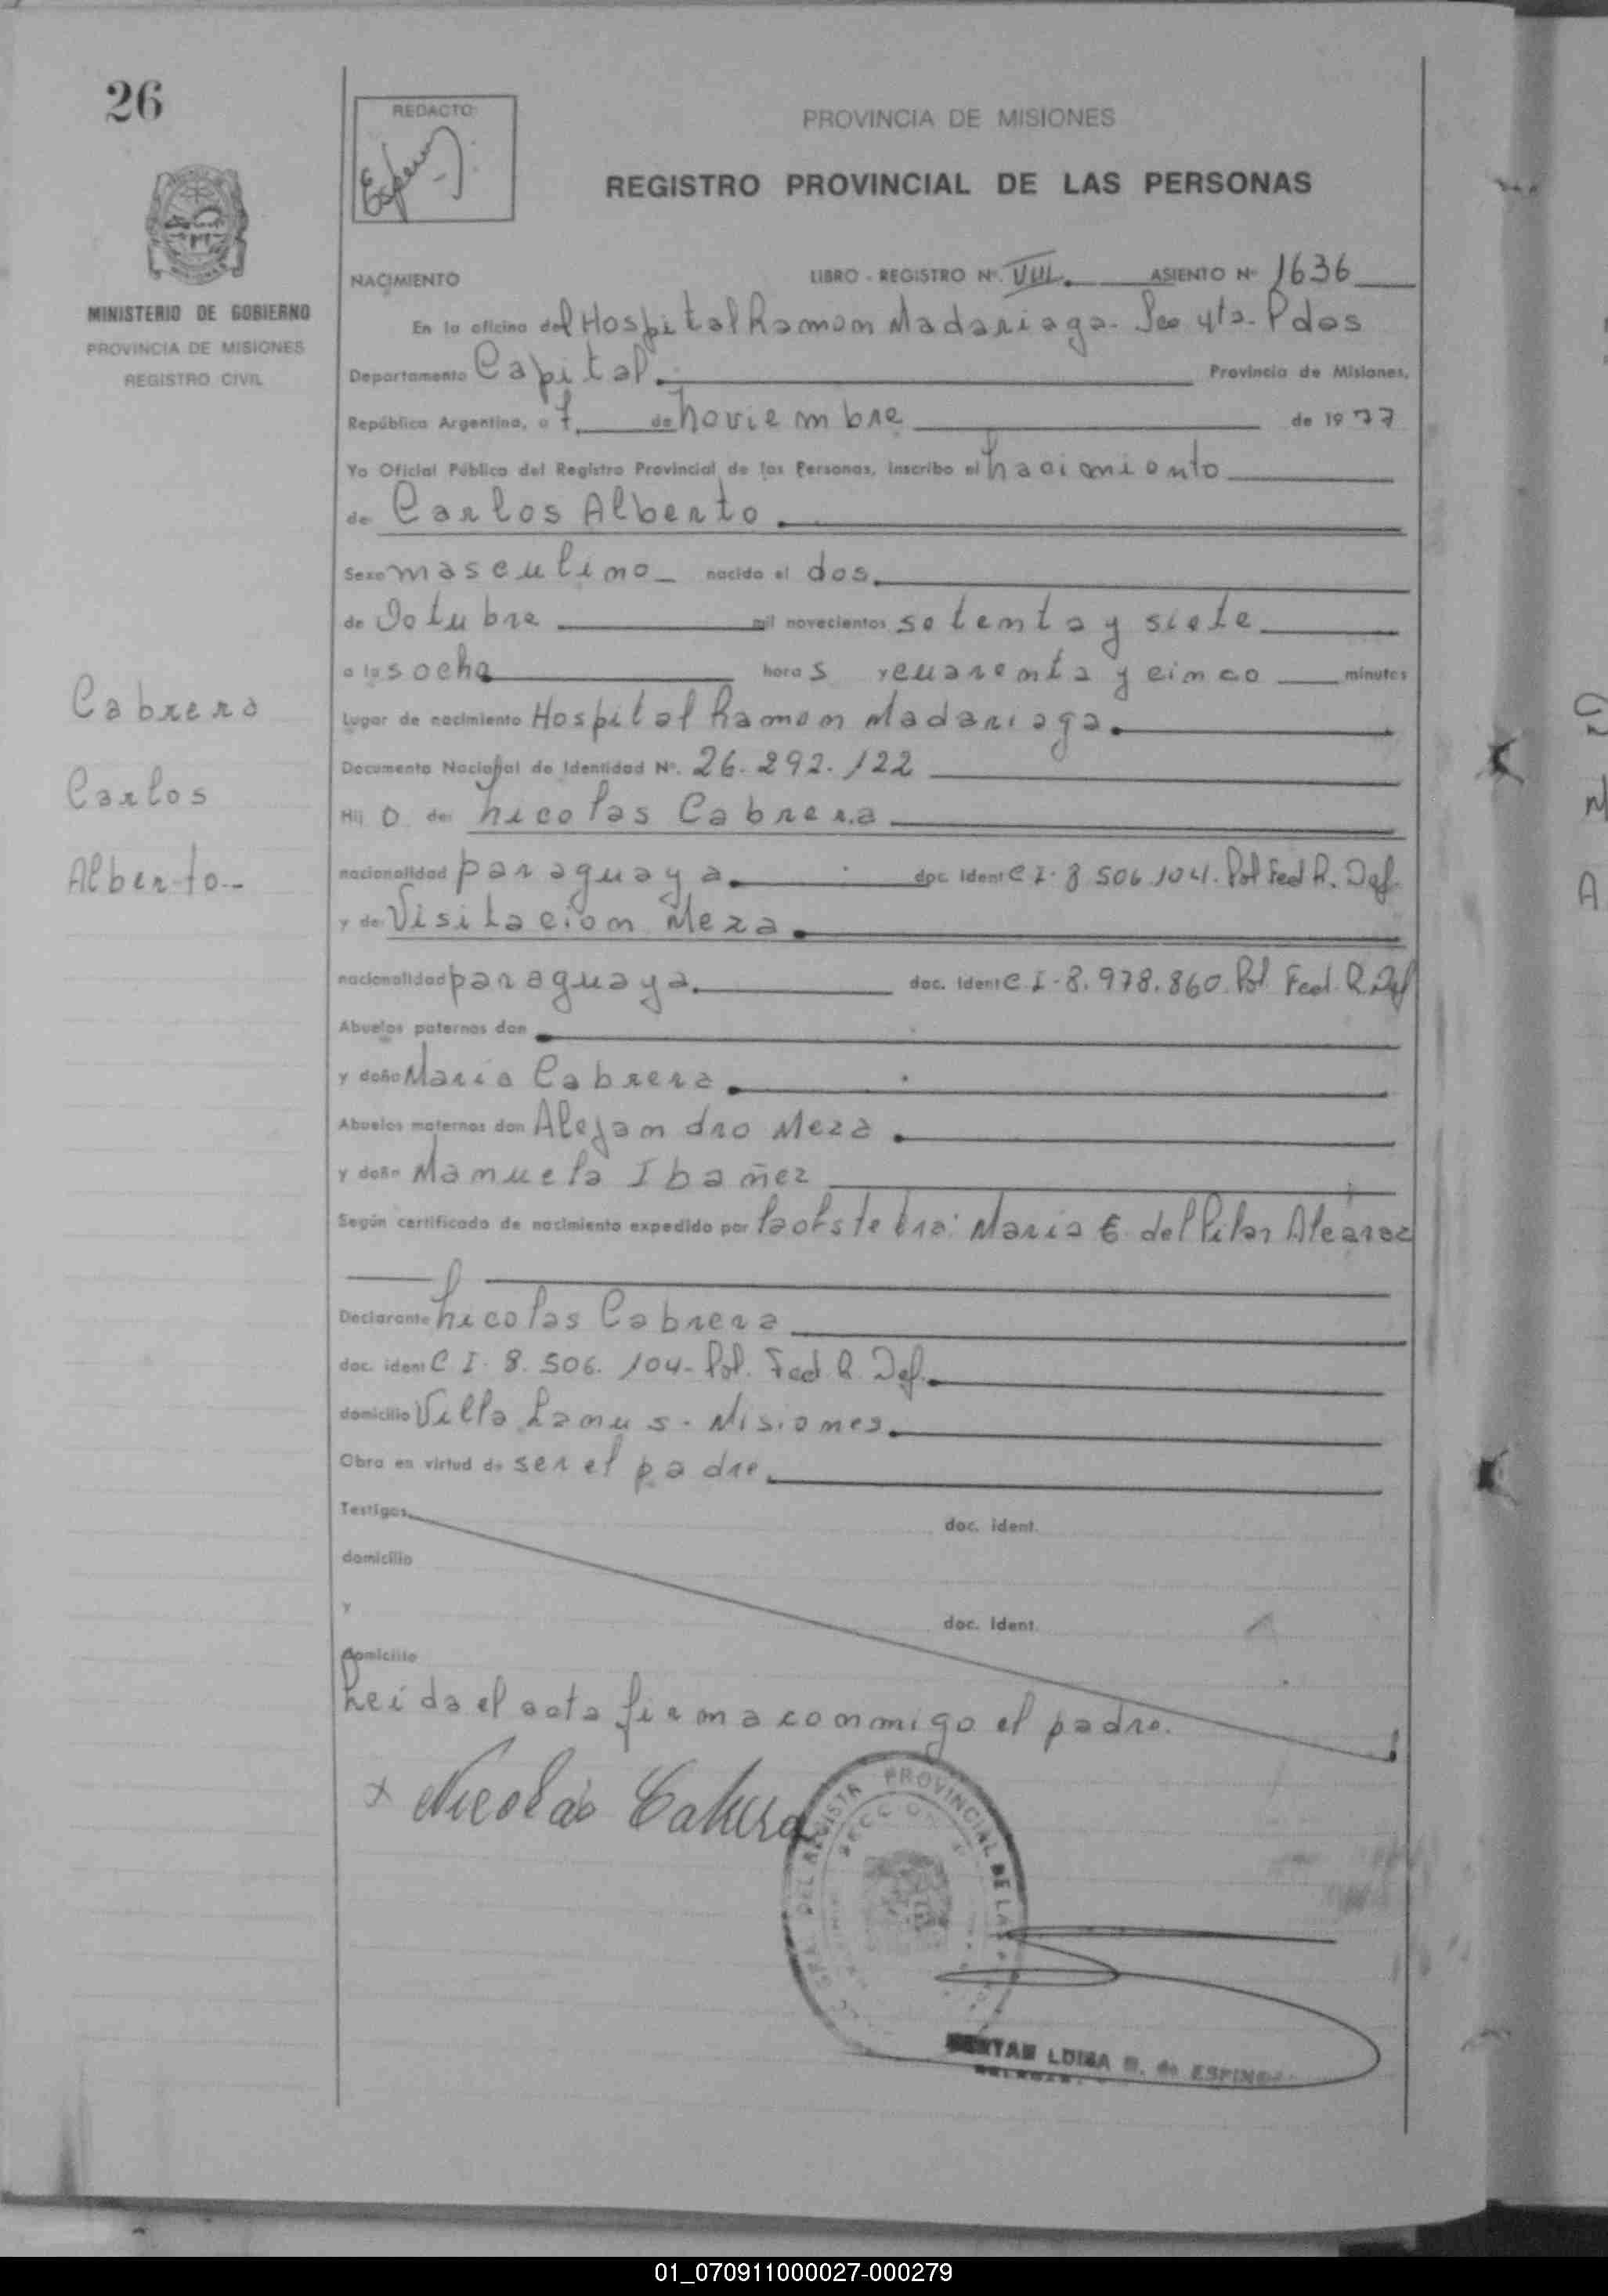 26
REDACTO:
PROVINCIA DE MISIONES
REGISTRO PROVINCIAL DE LAS PERSONAS
MINISTERIO DE GOBIERNO
PROVINCIA DE MISIONES
REGISTRO CIVIL
NACIMIENTO LIBRO - REGISTRO Nº. VIII. ASIENTO Nº 1636
En la oficina del Hospital Ramon Madariaga - Sec 4ta - Pdas
Departamento Capital. Provincia de Misiones,
República Argentina, a 7. de noviembre de 1977
Yo Oficial Público del Registro Provincial de las Personas, inscribo el nacimiento
de Carlos Alberto.
Sexo masculino nacido el dos.
de Octubre mil novecientos setenta y siete
a las ocho horas y cuarenta y cinco minutos
Lugar de nacimiento Hospital Ramon Madariaga.
Documento Nacional de Identidad Nº. 26.292.122
Hijo de: nicolas Cabrera
nacionalidad paraguaya. doc. ident C I. 8 506.104. Pol Fed R. Def.
y de Visitacion Meza.
nacionalidad paraguaya. doc. ident C. I - 8.978.860. Pol. Fed. R. Def
Abuelos paternos don
y doña Maria Cabrera.
Abuelos maternos don Alejandro Meza.
y doña Manuela Ibañez
Según certificado de nacimiento expedido por la obstetra: Maria E. del Pilar Alcaraz
Declarante nicolas Cabrera
doc. ident C I. 8. 506. 104 - Pol. Fed. R. Def.
domicilio Villa Lanus - Misiones.
Obra en virtud de ser el padre.
Testigos doc. ident.
domicilio
y doc. ident.
domicilio
Leida el acta firma conmigo el padre.
x Nicolás Cabrera
Cabrera
Carlos
Alberto.-
DEL REGISTR PROVINCIAL DE LA
SECCION
LUISA de ESPIN
01_070911000027-000279